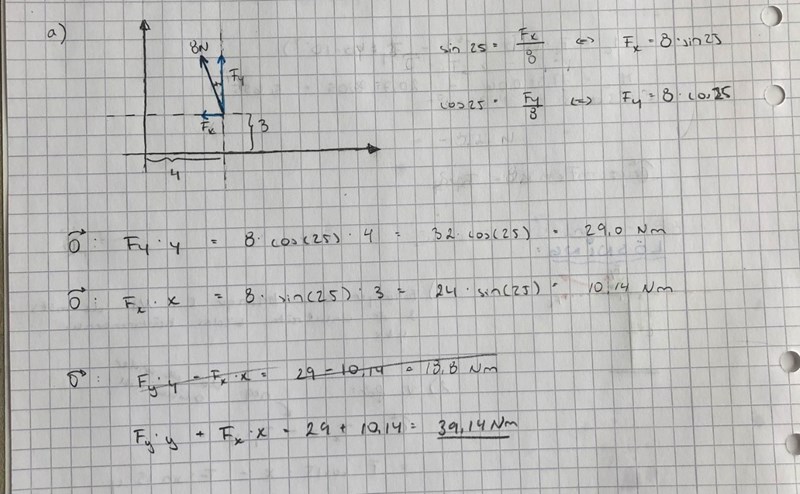 a)
8N
Fy
Fx
3
4
sin 25 = Fx/8 ⇔ Fx = 8 · sin25
cos25 = Fy/8 ⇔ Fy = 8 · cos25
Fy · y = 8 · cos(25) · 4 = 32 · cos(25) = 29,0 Nm
Fx · x = 8 · sin(25) · 3 = 24 · sin(25) = 10,14 Nm
Fy · y - Fx · x = 29 - 10,14 = 18,8 Nm
Fy · y + Fx · x = 29 + 10,14 = 39,14 Nm